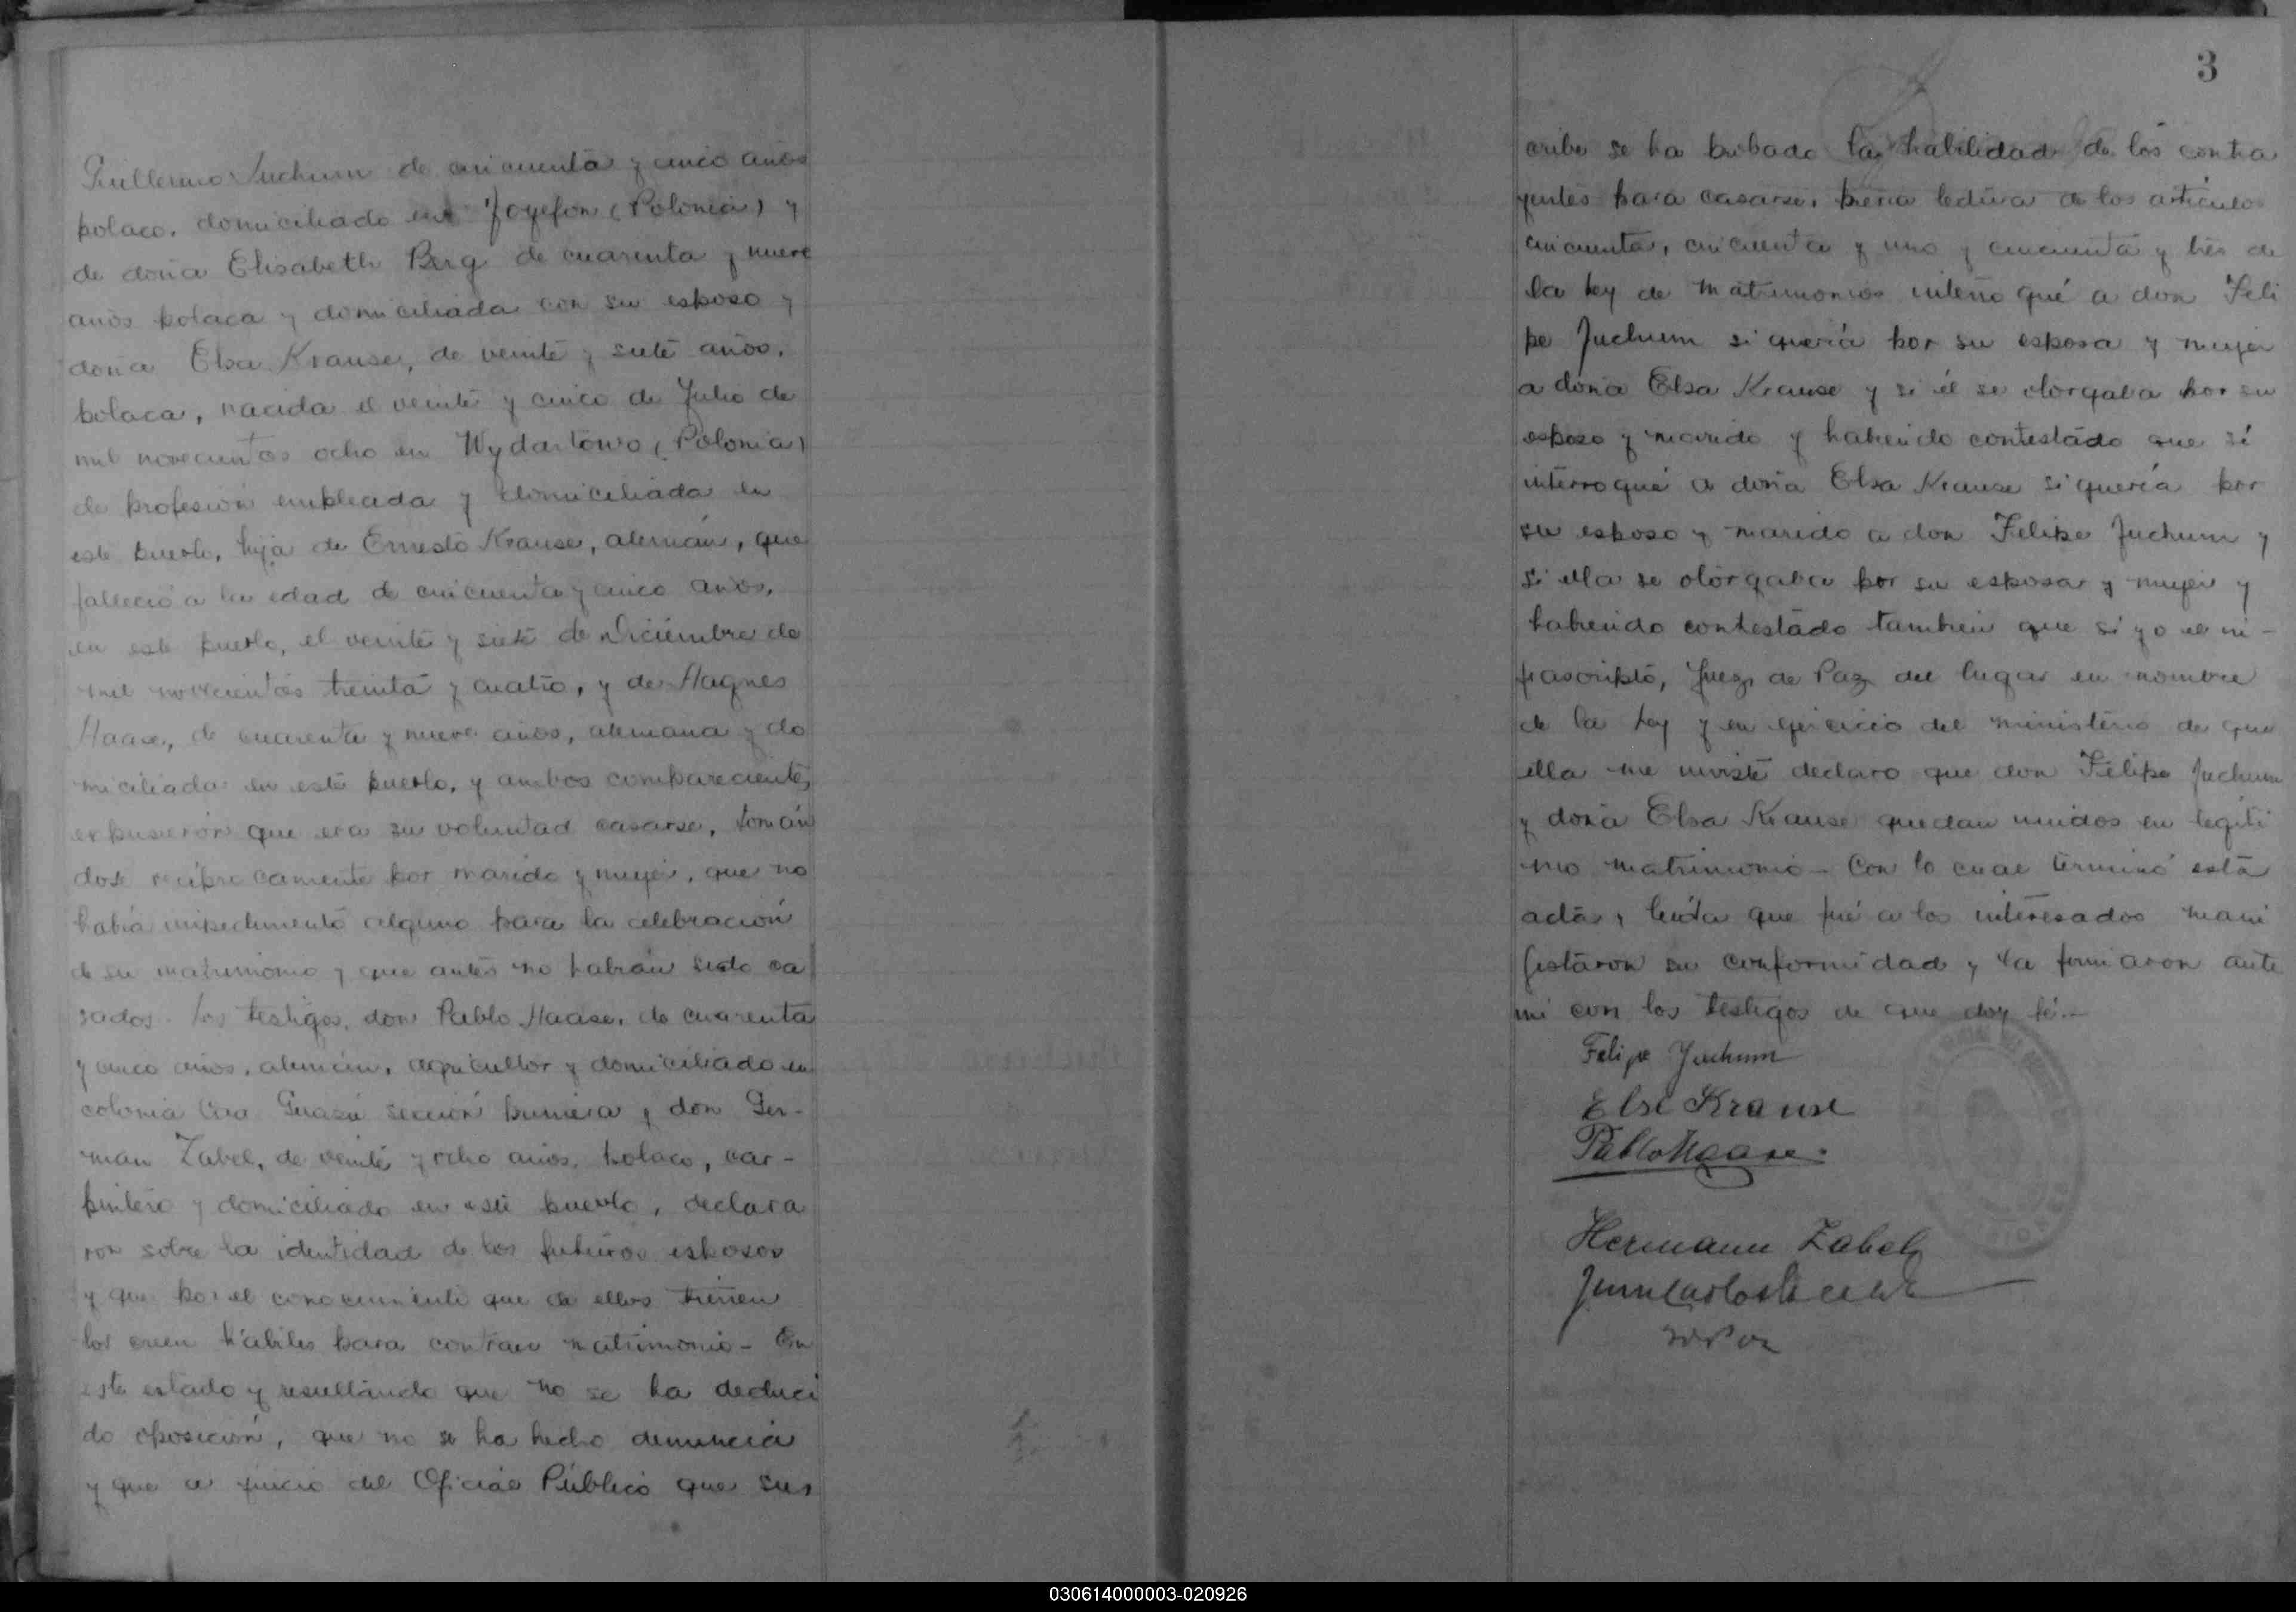 Guillermo Juchum de cincuenta y cinco años
polaco, domiciliado en Jozefon (Polonia) y
de doña Elisabeth Berg de cuarenta y nueve
años polaca y domiciliada con su esposo y
doña Elsa Krause, de veinte y siete años,
polaca, nacida el veinte y cinco de Julio de
mil novecientos ocho en Wydartowo (Polonia)
de profesión empleada y domiciliada en
este pueblo, hija de Ernesto Krause, alemán, que
falleció a la edad de cincuenta y cinco años,
en este pueblo, el veinte y siete de Diciembre de
mil novecientos treinta y cuatro, y de Hagnes
Haase, de cuarenta y nueve años, alemana y do
miciliada en este pueblo, y ambos comparecientes
expusieron que era su voluntad casarse, tomán
dose recíprocamente por marido y mujer, que no
había impedimento alguno para la celebración
de su matrimonio y que antes no habían sido ca
sados. Los testigos, don Pablo Haase, de cuarenta
y cinco años, alemán, agricultor y domiciliado en
colonia Caa Guazú sección primera y don Ger-
man Zabel, de veinte y ocho años, polaco, car-
pintero y domiciliado en este pueblo, declara
ron sobre la identidad de los futuros esposos
y que por el conocimiento que de ellos tienen
los creen hábiles para contraer matrimonio - En
este estado y resultando que no se ha deduci
do oposición, que no se ha hecho denuncia
y que a juicio del Oficial Público que sus
3
cribe se ha probado la habilidad de los contra
yentes para casarse, previa lectura de los artículos
cincuenta, cincuenta y uno y cincuenta y tres de
la Ley de Matrimonios interro qué a don Feli
pe Juchum si quería por su esposa y mujer
a doña Elsa Krause y si él se otorgaba por su
esposo y marido y habiendo contestado que sí
interroqué a doña Elsa Krause si quería por
su esposo y marido a don Felipe Juchum y
si ella se otorgaba por su esposa y mujer y
habiendo contestado tambien que si yo el in-
frascripto, Juez de Paz del lugar en nombre
de la Ley y en ejercicio del ministerio de que
ella me inviste declaro que don Felipe Juchum
y doña Elsa Krause quedan unidos en legíti
mo matrimonio - Con lo cual terminó esta
acta, leída que fué a los interesados mani
festaron su conformidad y la firmaron ante
mi con los testigos de que doy fé.-
Felipe Juchum
Else Krause
Pablo Haase.
Hermann Zabel
030614000003-020926